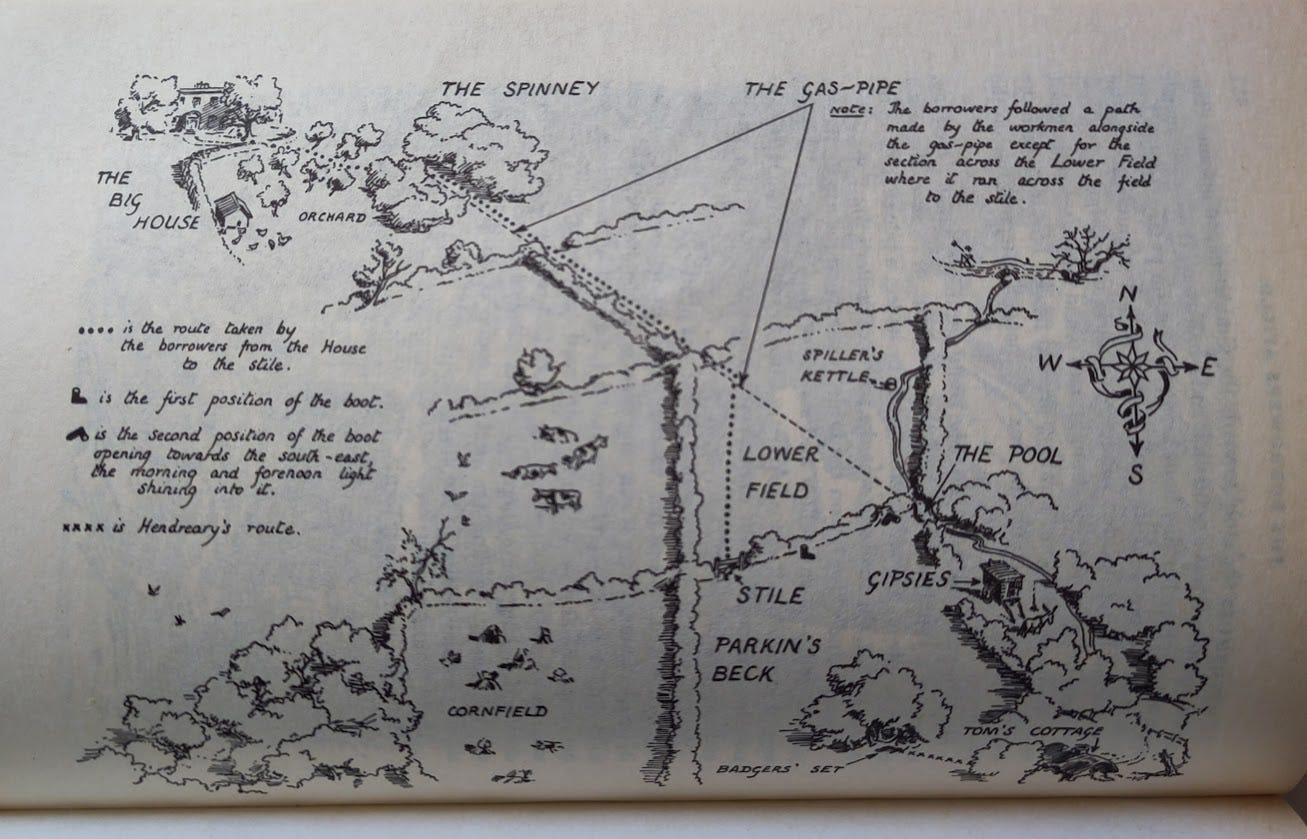 THE SPINNEY
THE GAS-PIPE
NOTE: The borrowers followed a path
made by the workmen alongside
the gas-pipe except for the
section across the Lower Field
where it ran across the field
to the stile.
THE
BIG
HOUSE
ORCHARD
.... is the route taken by
the borrowers from the House
to the stile.
is the first position of the boot.
is the second position of the boot
opening towards the south-east,
the morning and forenoon light
shining into it.
xxxx is Hendreary's route.
SPILLER'S
KETTLE
N
W
E
S
LOWER
FIELD
THE POOL
STILE
GIPSIES
PARKIN'S
BECK
CORNFIELD
TOM'S COTTAGE
BADGERS' SET